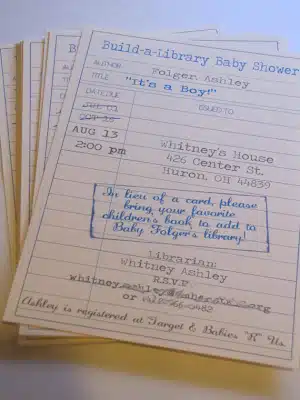 Build-a-Library Baby Shower
AUTHOR Folger Ashley
TITLE "It's a Boy!"
DATE DUE ISSUED TO
AUG 13
2:00 pm
Whitney's House
426 Center St.
Huron, OH 44839
In lieu of a card, please
bring your favorite
children's book to add to
Baby Folger's library!
Librarian:
Whitney Ashley
R.S.V.P.
or
Ashley is registered at Target & Babies "R" Us.